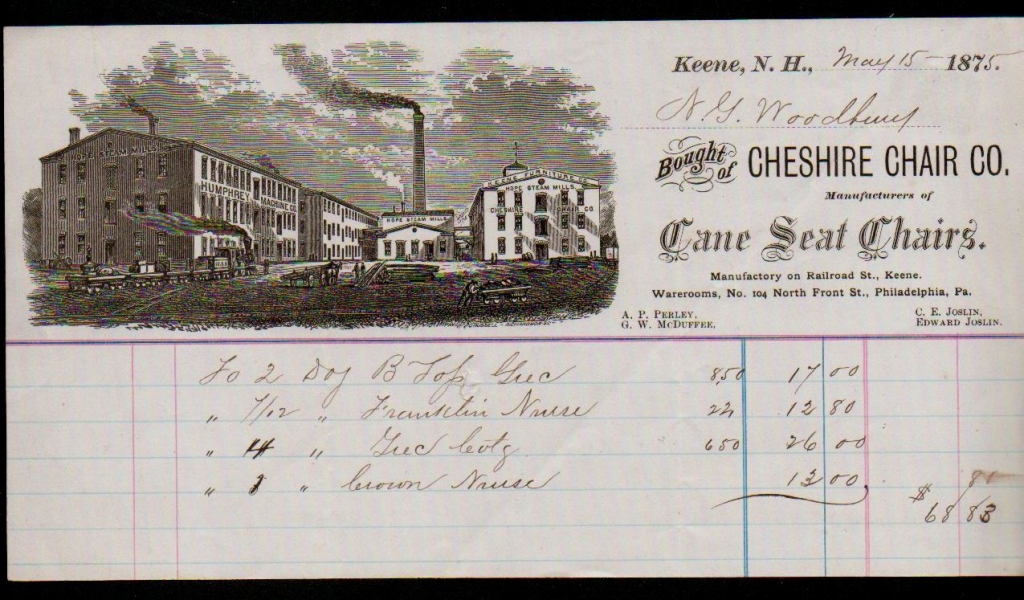 HOPE STEAM MILLS
HUMPHREY MACHINE CO.
HOPE STEAM MILLS
KEENE FURNITURE CO.
HOPE STEAM MILLS.
CHESHIRE CHAIR CO.
Keene, N. H., May 15 1875.
N. G. Woodbury
Bought of CHESHIRE CHAIR CO.
Manufacturers of
Cane Seat Chairs.
Manufactory on Railroad St., Keene.
Warerooms, No. 104 North Front St., Philadelphia, Pa.
A. P. PERLEY, C. E. JOSLIN,
G. W. MCDUFFEE, EDWARD JOSLIN.
To 2 Doz B Top Grec 8.50 17 00
" 7/12 " Franklin Nurse 22 12 80
" 4 " Grec Cotg 650 26 00
" 1 " Crown Nurse 13 00
$ 68 83